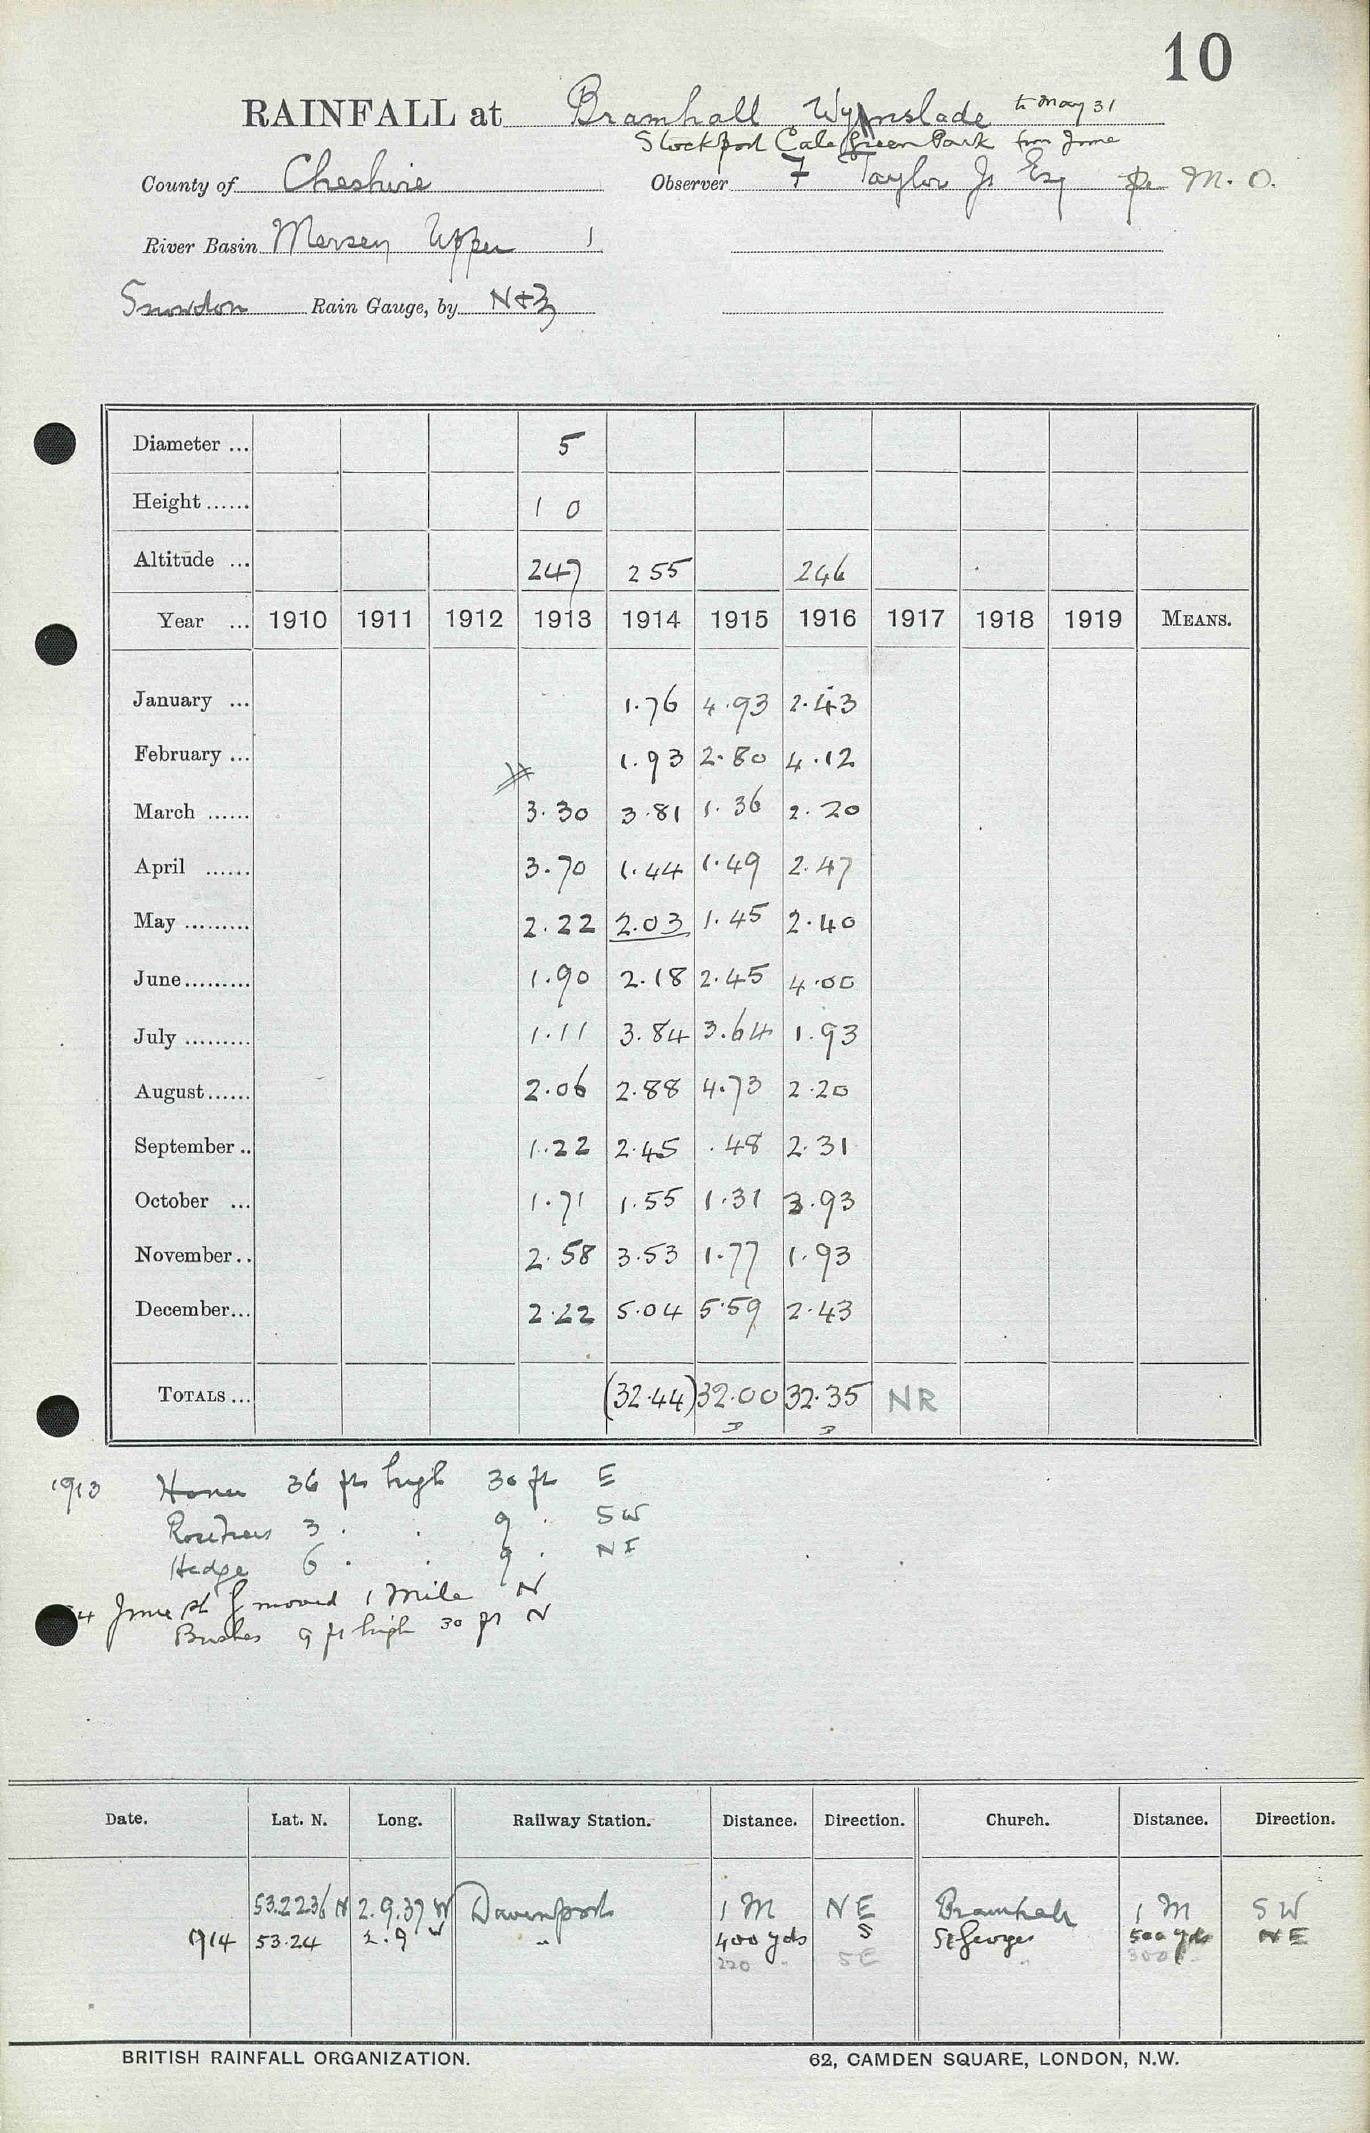 10
RAINFALL at Bramhall Wynnslade to May 31
Stockport Cale Green Park from June
County of Cheshire Observer F Taylor Jr Esq per M. O.
River Basin Mersey Upper 1
Snowdon Rain Gauge, by N+Z
Diameter ... 5
Height ...... 1 0
Altitude ... 247 255 246
Year ... 1910 1911 1912 1913 1914 1915 1916 1917 1918 1919 MEANS.
January ... 1.76 4.93 2.43
February ... 1.93 2.80 4.12
March ...... 3.30 3.81 1.36 2.20
April ...... 3.70 1.44 1.49 2.47
May ......... 2.22 2.03 1.45 2.40
June ......... 1.90 2.18 2.45 4.00
July ......... 1.11 3.84 3.64 1.93
August ...... 2.06 2.88 4.73 2.20
September .. 1.22 2.45 .48 2.31
October ... 1.71 1.55 1.31 3.93
November .. 2.58 3.53 1.77 1.93
December ... 2.22 5.04 5.59 2.43
TOTALS ... (32.44) 32.00 32.35 NR
1913 House 36 ft high 30 ft E
Rosetrees 3 . . 9 . SW
Hedge 6 . . 9 . NE
4 June 1st G moved 1 Mile N
Bushes 9 ft high 30 ft N
Date. Lat. N. Long. Railway Station. Distance. Direction. Church. Distance. Direction.
53.22.36 N 2.9.37 W Davenport 1 M NE Bramhall 1 M SW
1914 53.24 2.9 W " 400 yds S St Georges 500 yds NE
220 " SE " 300 "
BRITISH RAINFALL ORGANIZATION. 62, CAMDEN SQUARE, LONDON, N.W.